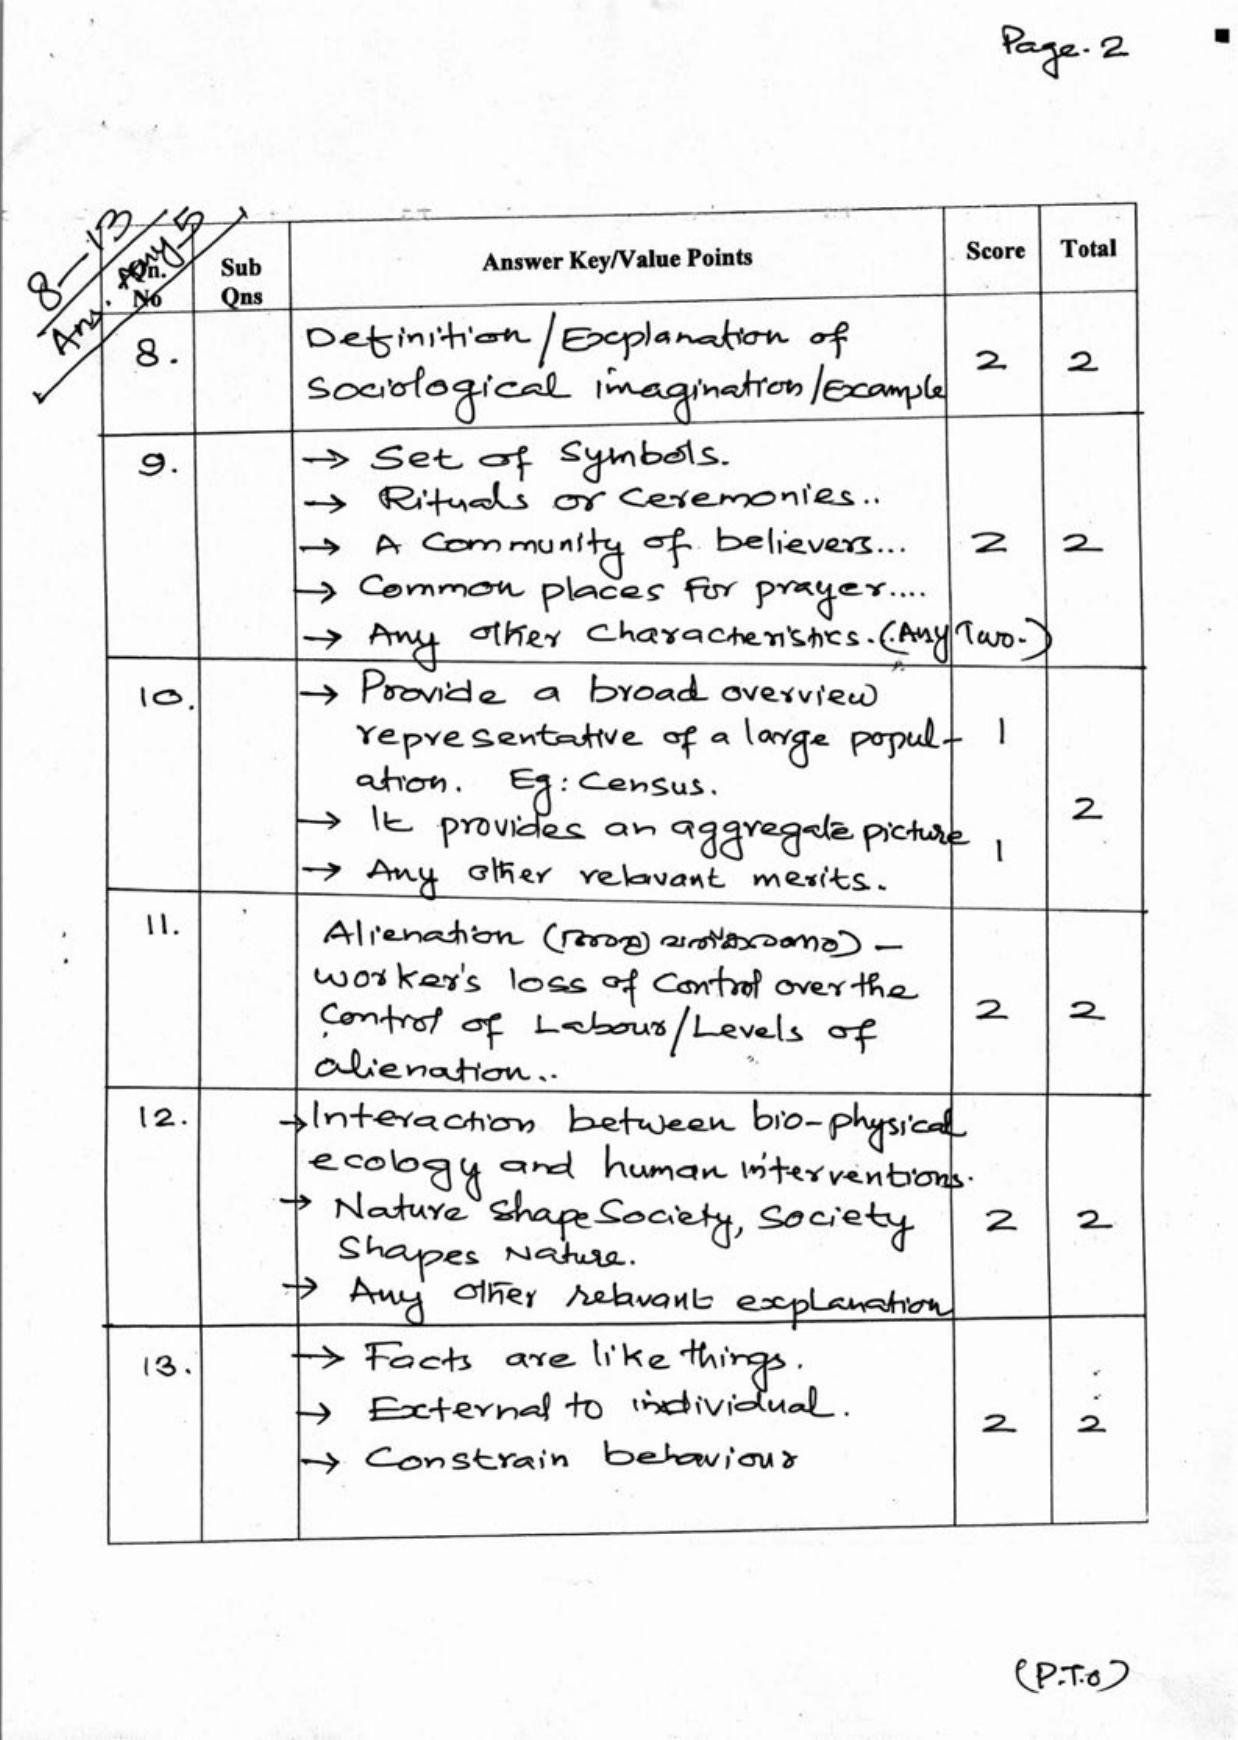 Page. 2
8—13
Ans. Any 5
Qn. No
Sub Qns
Answer Key/Value Points
Score
Total
8.
Definition/Explanation of
Sociological imagination/Example
2
2
9.
→ Set of Symbols.
→ Rituals or Ceremonies..
→ A Community of believers...
2
2
→ Common places for prayer....
→ Any other Characteristics. (Any Two.)
10.
→ Provide a broad overview
representative of a large popul-
1
ation. Eg: Census.
→ It provides an aggregate picture
1
2
→ Any other relavant merits.
11.
Alienation () —
worker's loss of Control over the
Control of Labour/Levels of
2
2
alienation..
12.
→ Interaction between bio-physical
ecology and human interventions.
→ Nature Shape Society, Society
2
2
Shapes Nature.
→ Any other relavant explanation
13.
→ Facts are like things.
→ External to individual.
2
2
→ Constrain behaviour
(P.T.O)